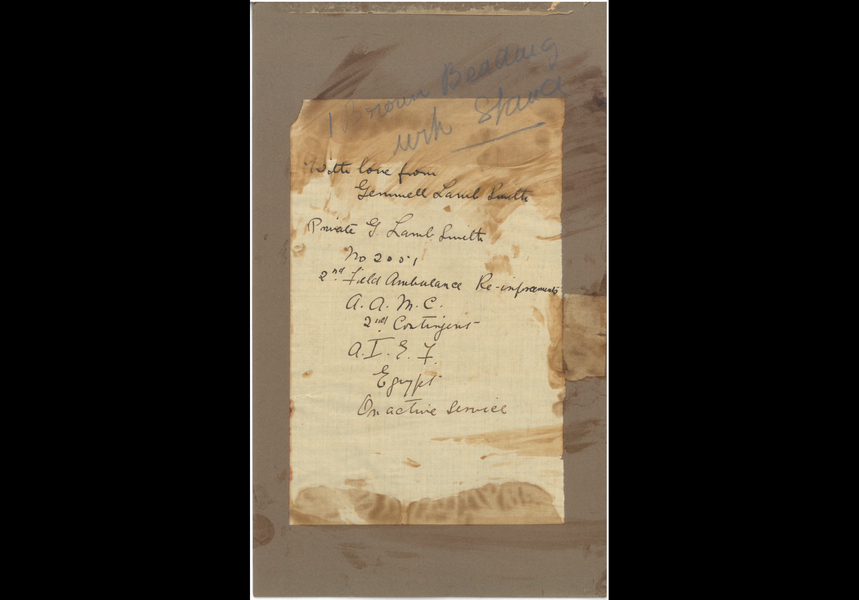 1 Brown Beading
with Stand
With love from
Gemmell Lamb Smith
Private G Lamb Smith
No 2051
2nd Field Ambulance Re-inforcements
A. A. M. C.
2nd Contingent
A. I. E. F.
Egypt
On active service